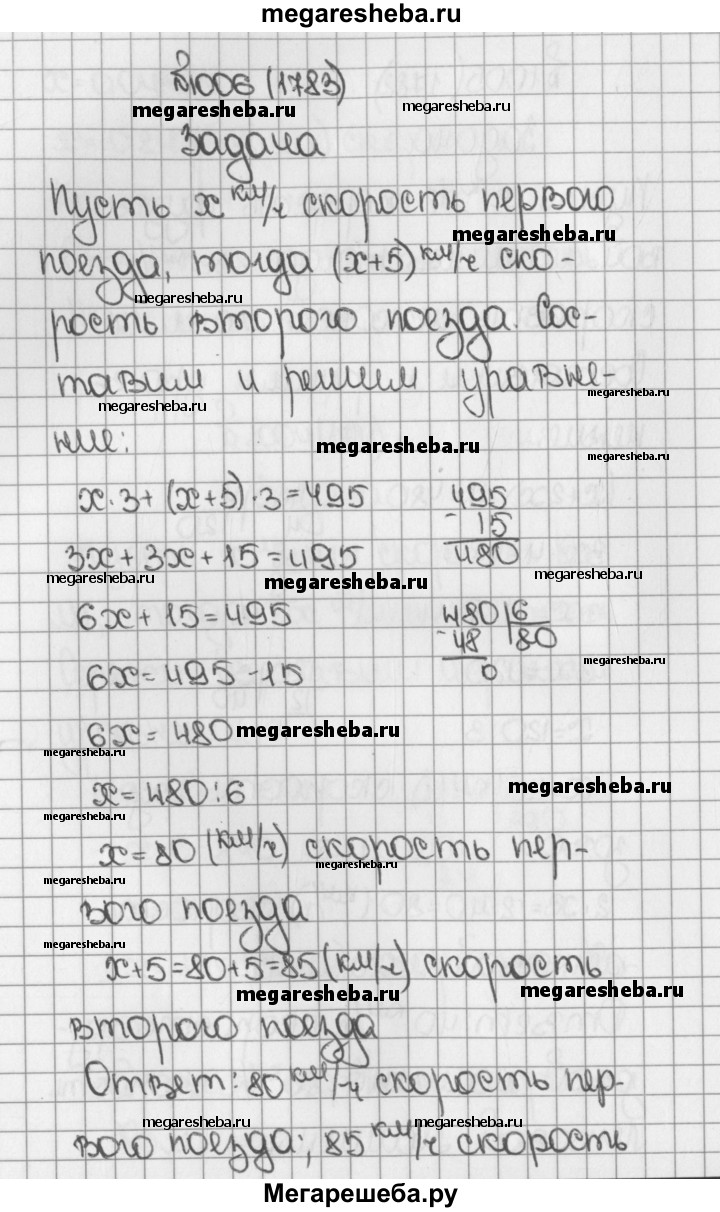 megaresheba.ru
№1006 (1783)
megaresheba.ru
megaresheba.ru
Задача
Пусть x км/ч скорость первого
megaresheba.ru
поезда, тогда (x+5) км/ч ско-
megaresheba.ru
рость второго поезда. Сос-
тавим и решим уравне-
megaresheba.ru
megaresheba.ru
ние:
megaresheba.ru
megaresheba.ru
x·3+(x+5)·3=495
495
- 15
480
3x+3x+15=495
megaresheba.ru
megaresheba.ru
megaresheba.ru
6x+15=495
480 6
- 48 80
0
megaresheba.ru
6x=495-15
6x=480
megaresheba.ru
megaresheba.ru
x=480:6
megaresheba.ru
megaresheba.ru
x=80 (км/ч) скорость пер-
megaresheba.ru
megaresheba.ru
вого поезда
megaresheba.ru
x+5=80+5=85(км/ч) скорость
megaresheba.ru
megaresheba.ru
второго поезда
Ответ: 80 км/ч скорость пер-
megaresheba.ru
megaresheba.ru
вого поезда; 85 км/ч скорость
Мегарешеба.ру